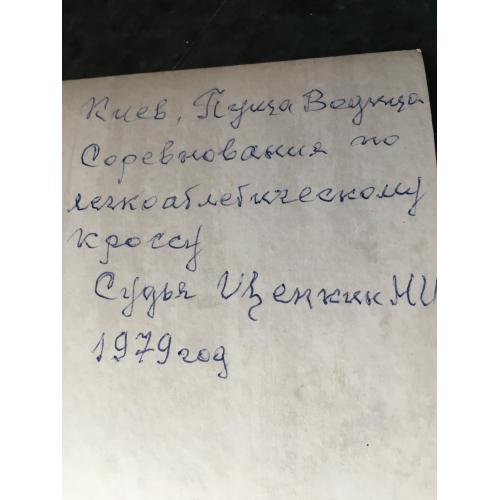 Киев, Пуща Водица
Соревнования по
легкоатлетическому
кроссу
Судья М
1979 год